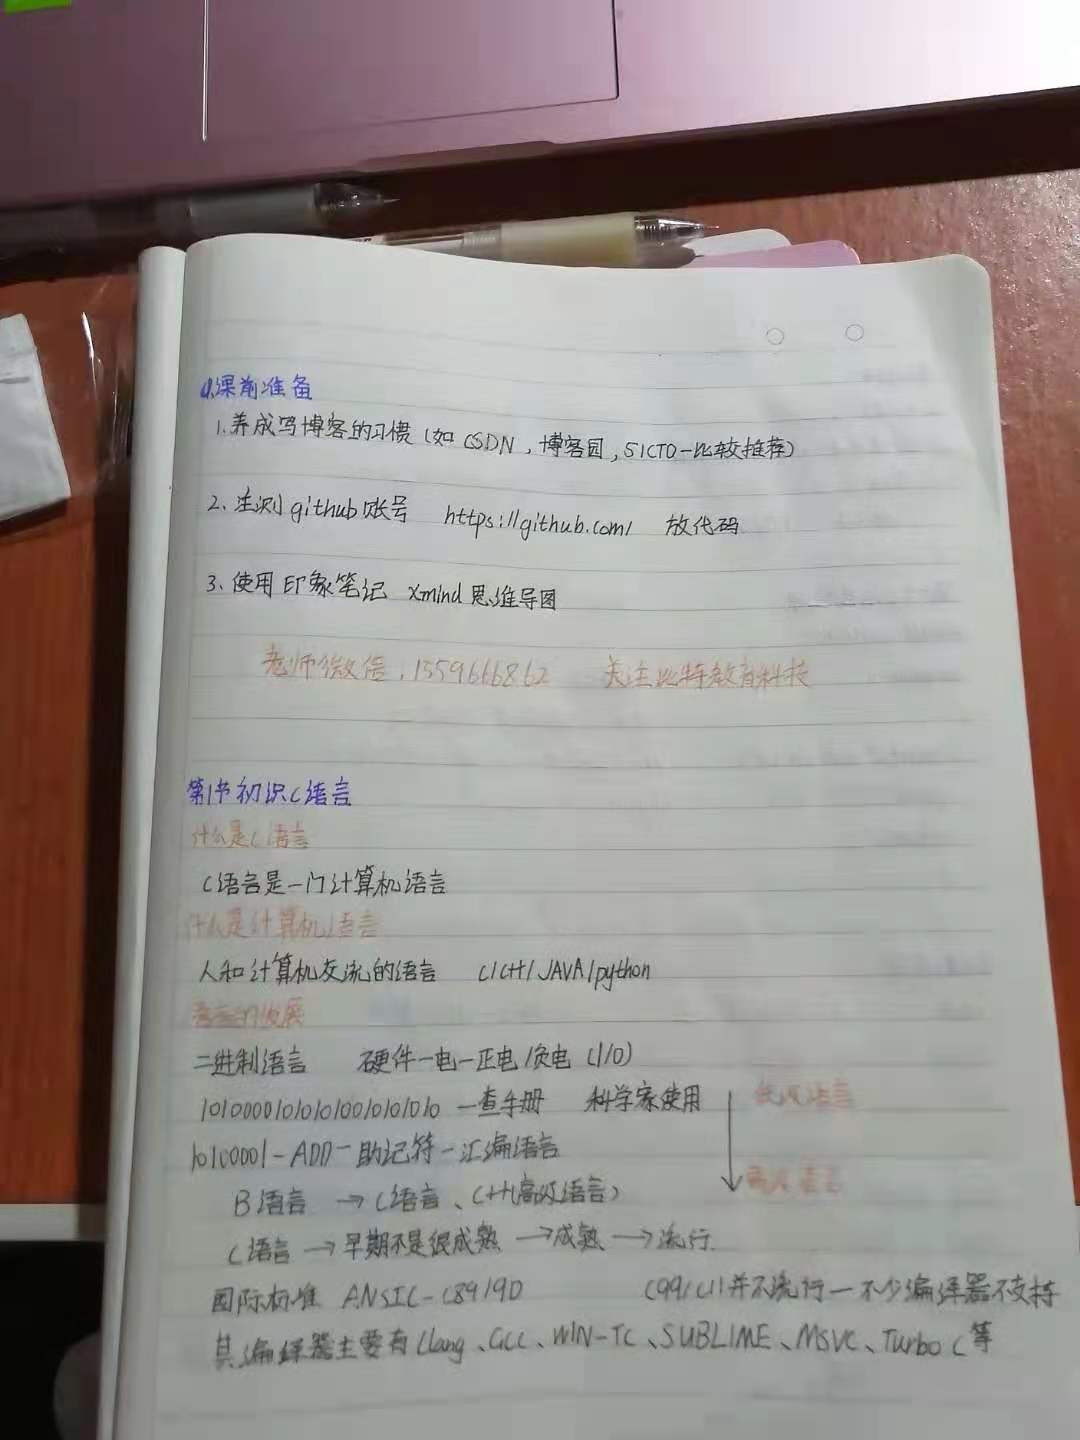 0.课前准备
1.养成写博客的习惯（如CSDN，博客园，51CTO-比较推荐）
2、注测github账号 https://github.com/ 放代码
3、使用印象笔记 Xmind思维导图
老师微信：1559666862 关注比特教育科技
第1节初识C语言
什么是C语言
C语言是一门计算机语言
什么是计算机语言
人和计算机交流的语言 C/C++/JAVA/python
语言的发展
二进制语言 硬件—电—正电/负电（1/0）
1010000101010100101010 —查手册 科学家使用 低级语言
10100001-ADD-助记符-汇编语言
高级语言
B语言 → C语言、C++(高级语言）
C语言 → 早期不是很成熟 → 成熟 → 流行
国际标准 ANSIC-C89/90 C99/C11并不流行—不少编译器不支持
其编译器主要有Clang、GCC、WIN-TC、SUBLIME、MSVC、Turbo C等